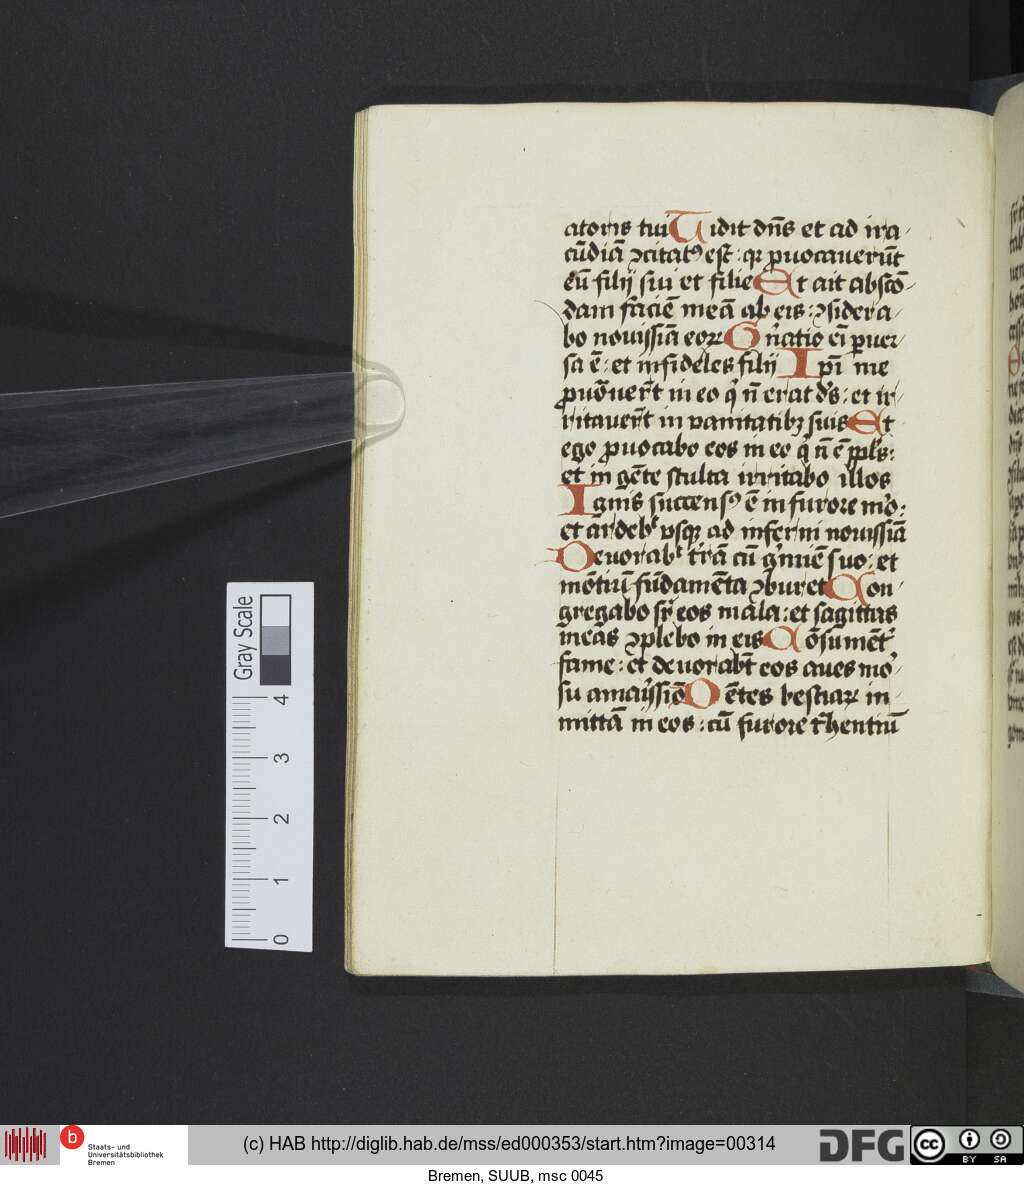 atoris tui Uidit dn̄s et ad ira-
cūdiā ↄcitatꝰ est : qꝛ ꝓuocauerūt
eū filij sui et filie Et ait abscō-
dam faciē meā ab eis : ↄsidera-
bo nouissīa eoꝝ Gn̄atio ei ꝑuer-
sa ē : et infideles filij Ipī me
ꝓuōuert̄ in eo qͥ n̄ erat ds̄ : et ir-
ritauert̄ in vanitatibꝫ suis Et
ego ꝓuocabo eos in eo qͥ n̄ ē ppls̄ :
et in gēte stulta irritabo illos
Ignis succensꝰ ē in furore mō :
et ardebt̄ vsqꝫ ad inferni nouissīa
Deuorabt̄ tr̄ā cū gͥmiē suo : et
mōtiū fūdamēta ↄburet Con-
gregabo sr̄ eos mala : et sagittas
meas ↄplebo in eis Cōsument̄
fame : et deuorabt̄ eos aues mo-
su amarissīo Dētes bestiaꝝ in-
mittā in eos : cū furore tͣhentiū
Gray Scale
4
3
2
1
0
b Staats- und
Universitätsbibliothek
Bremen
(c) HAB http://diglib.hab.de/mss/ed000353/start.htm?image=00314
DFG
cc BY SA
Bremen, SUUB, msc 0045